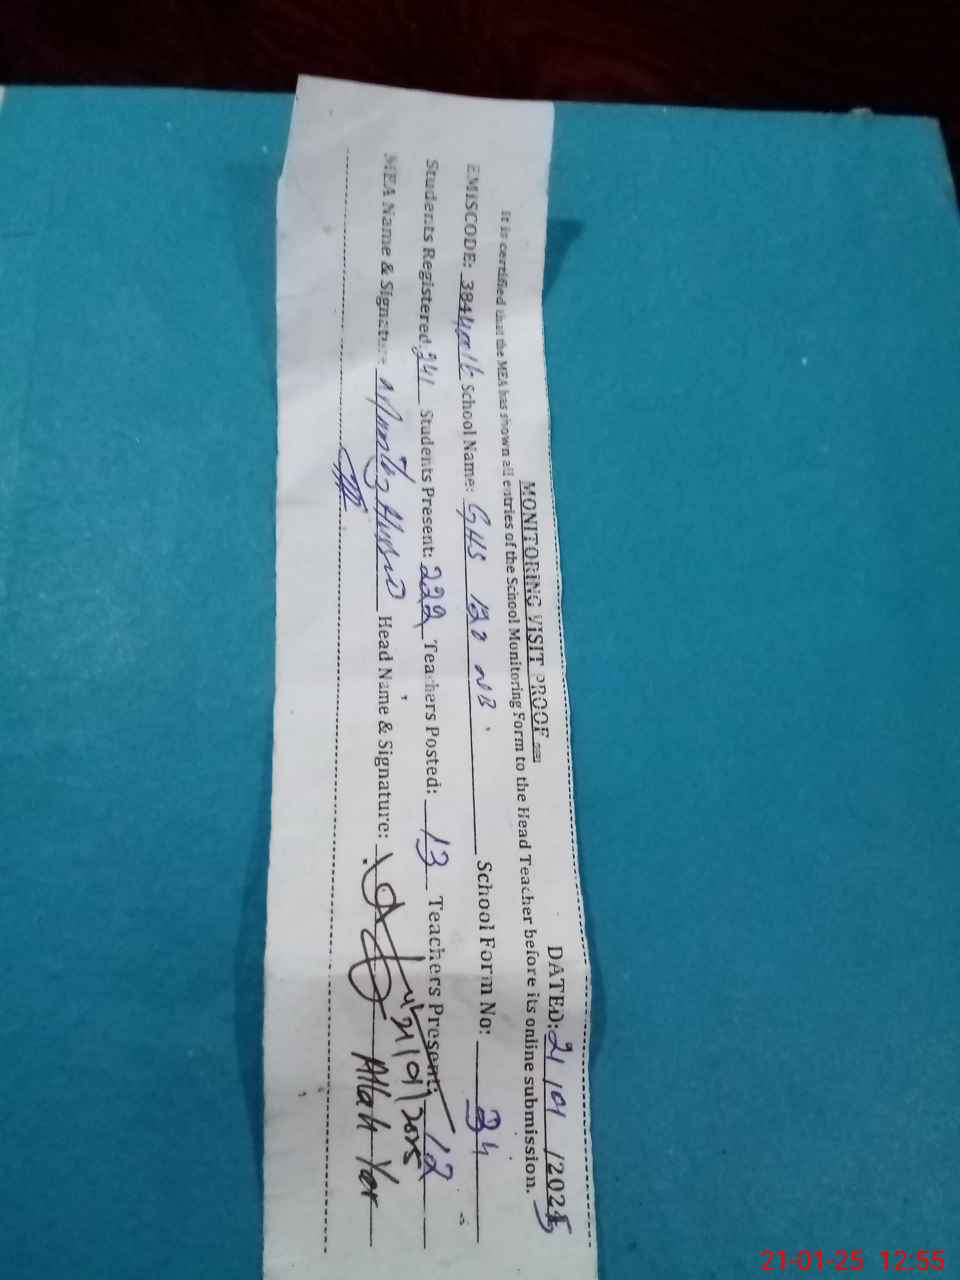 MONITORING VISIT PROOF DATED: 21/01/2025
It is certified that the MEA has shown all entries of the School Monitoring Form to the Head Teacher before its online submission.
EMISCODE: School Name: GHS 120 NB School Form No: 34
Students Registered: 241 Students Present: 222 Teachers Posted: 13 Teachers Present: 12
MEA Name & Signature Head Name & Signature: 21/01/2025 Allah Yar
21-01-25 12:55